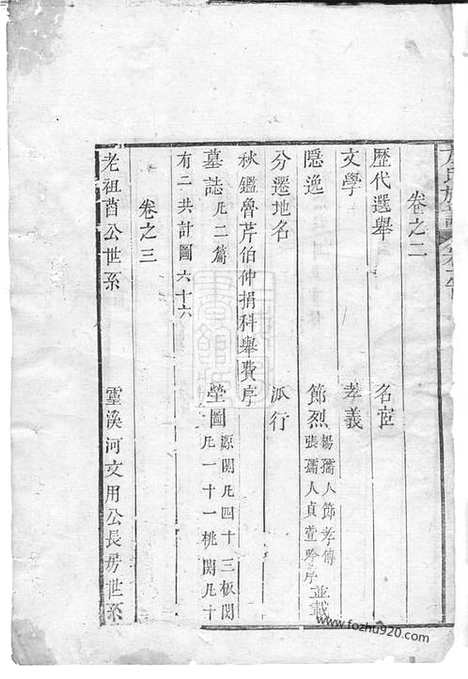 卷之二
歷代選舉 名宦
文學 孝義
隱逸 節烈 楊孺人節孝傳 張孺人貞萱吟序 並載
分遷地名 派行
秋鑑魯芹伯仲捐科舉費序
墓誌 凡二篇 塋圖 源閔凡四十三板閔 凡一十一桃閔凡十
有二共計圖六十六
卷之三
老祖酋公世系 靈溪河文用公長房世系
www.fozhu920.com